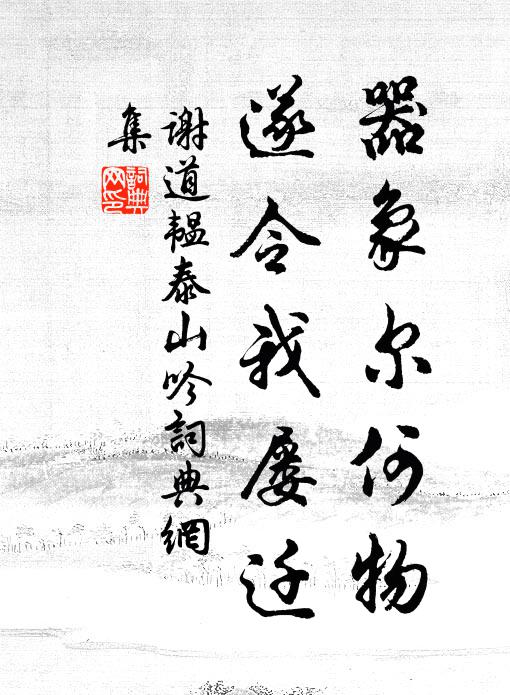 器象尔何物
遂令我屡迁
谢道韫泰山吟詞典網
集
詞典
网印